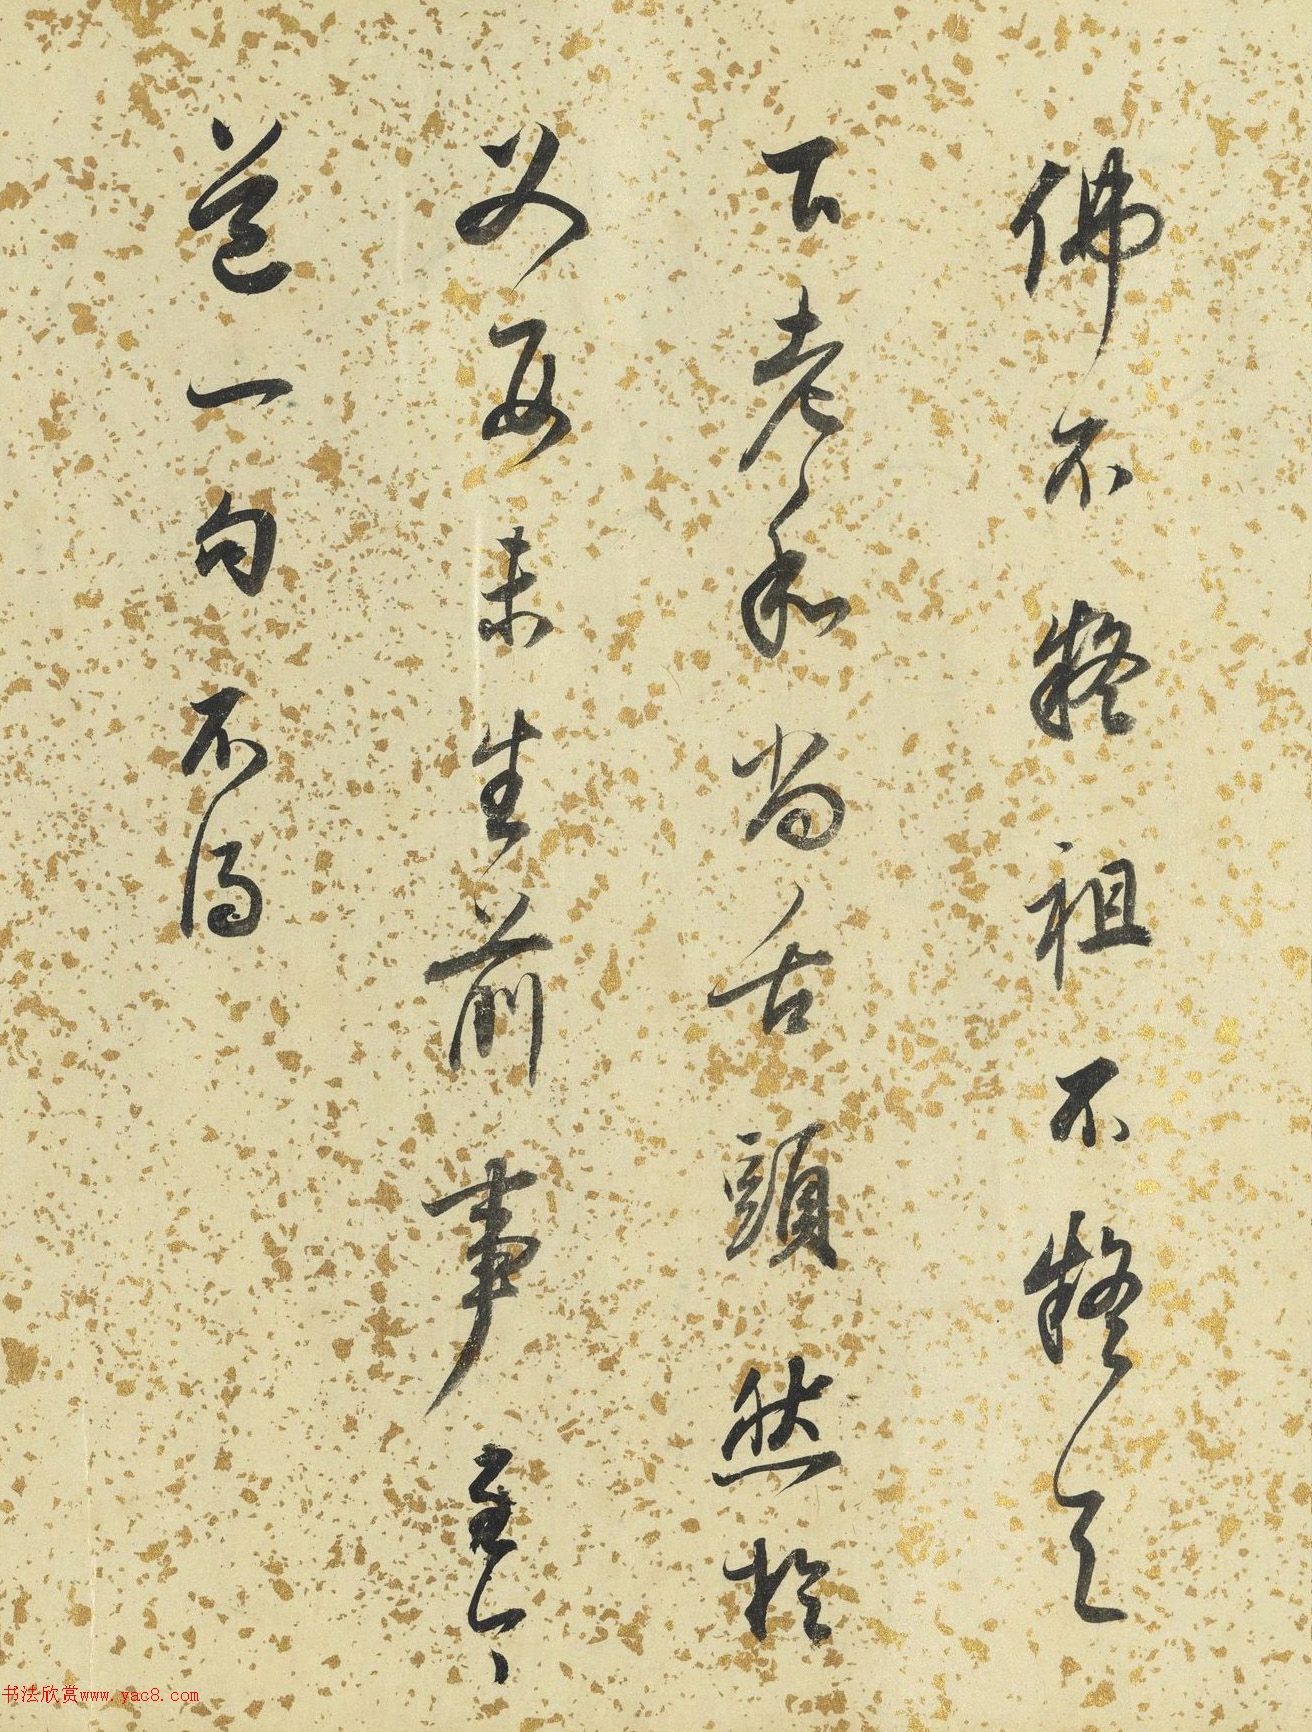 佛不疑祖不疑天
下老和尚舌頭然於
父母未生前事至今
道一句不得
书法欣赏www.yac8.com